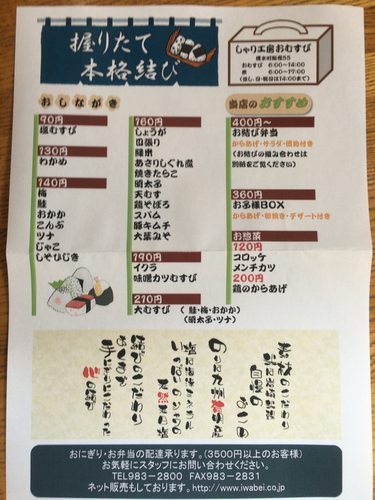 握りたて
本格結び
しゃり工房おむすび
おむすび 6:00〜14:00
米 6:00〜17:00
おしながき
90円
塩むすび
130円
わかめ
140円
梅
鮭
おかか
こんぶ
ツナ
じゃこ
しそひじき
160円
しょうが
四張り
穂米
あさりしぐれ煮
焼きたらこ
明太子
天むす
鶏そぼろ
スパム
豚キムチ
大葉みそ
190円
イクラ
味噌カツむすび
210円
大むすび ( 鮭・梅・おかか)
(明太子・ツナ)
当店のおすすめ
400円〜
お結び弁当
からあげ・サラダ・漬物付き
(お結びの組み合わせは
別紙をご覧ください)
360円
お子様BOX
からあげ・卵焼き・デザート付き
お惣菜
120円
コロッケ
メンチカツ
200円
鶏のからあげ
素材のこだわり
自慢の
のりは九州有明産
天然天日塩
結びのこだわり
手にこだわった
心の結び
おにぎり・お弁当の配達承ります。(3500円以上のお客様)
お気軽にスタッフにお問い合わせください。
TEL983-2800 FAX983-2831
ネット販売もしております。http://www.iwabei.co.jp